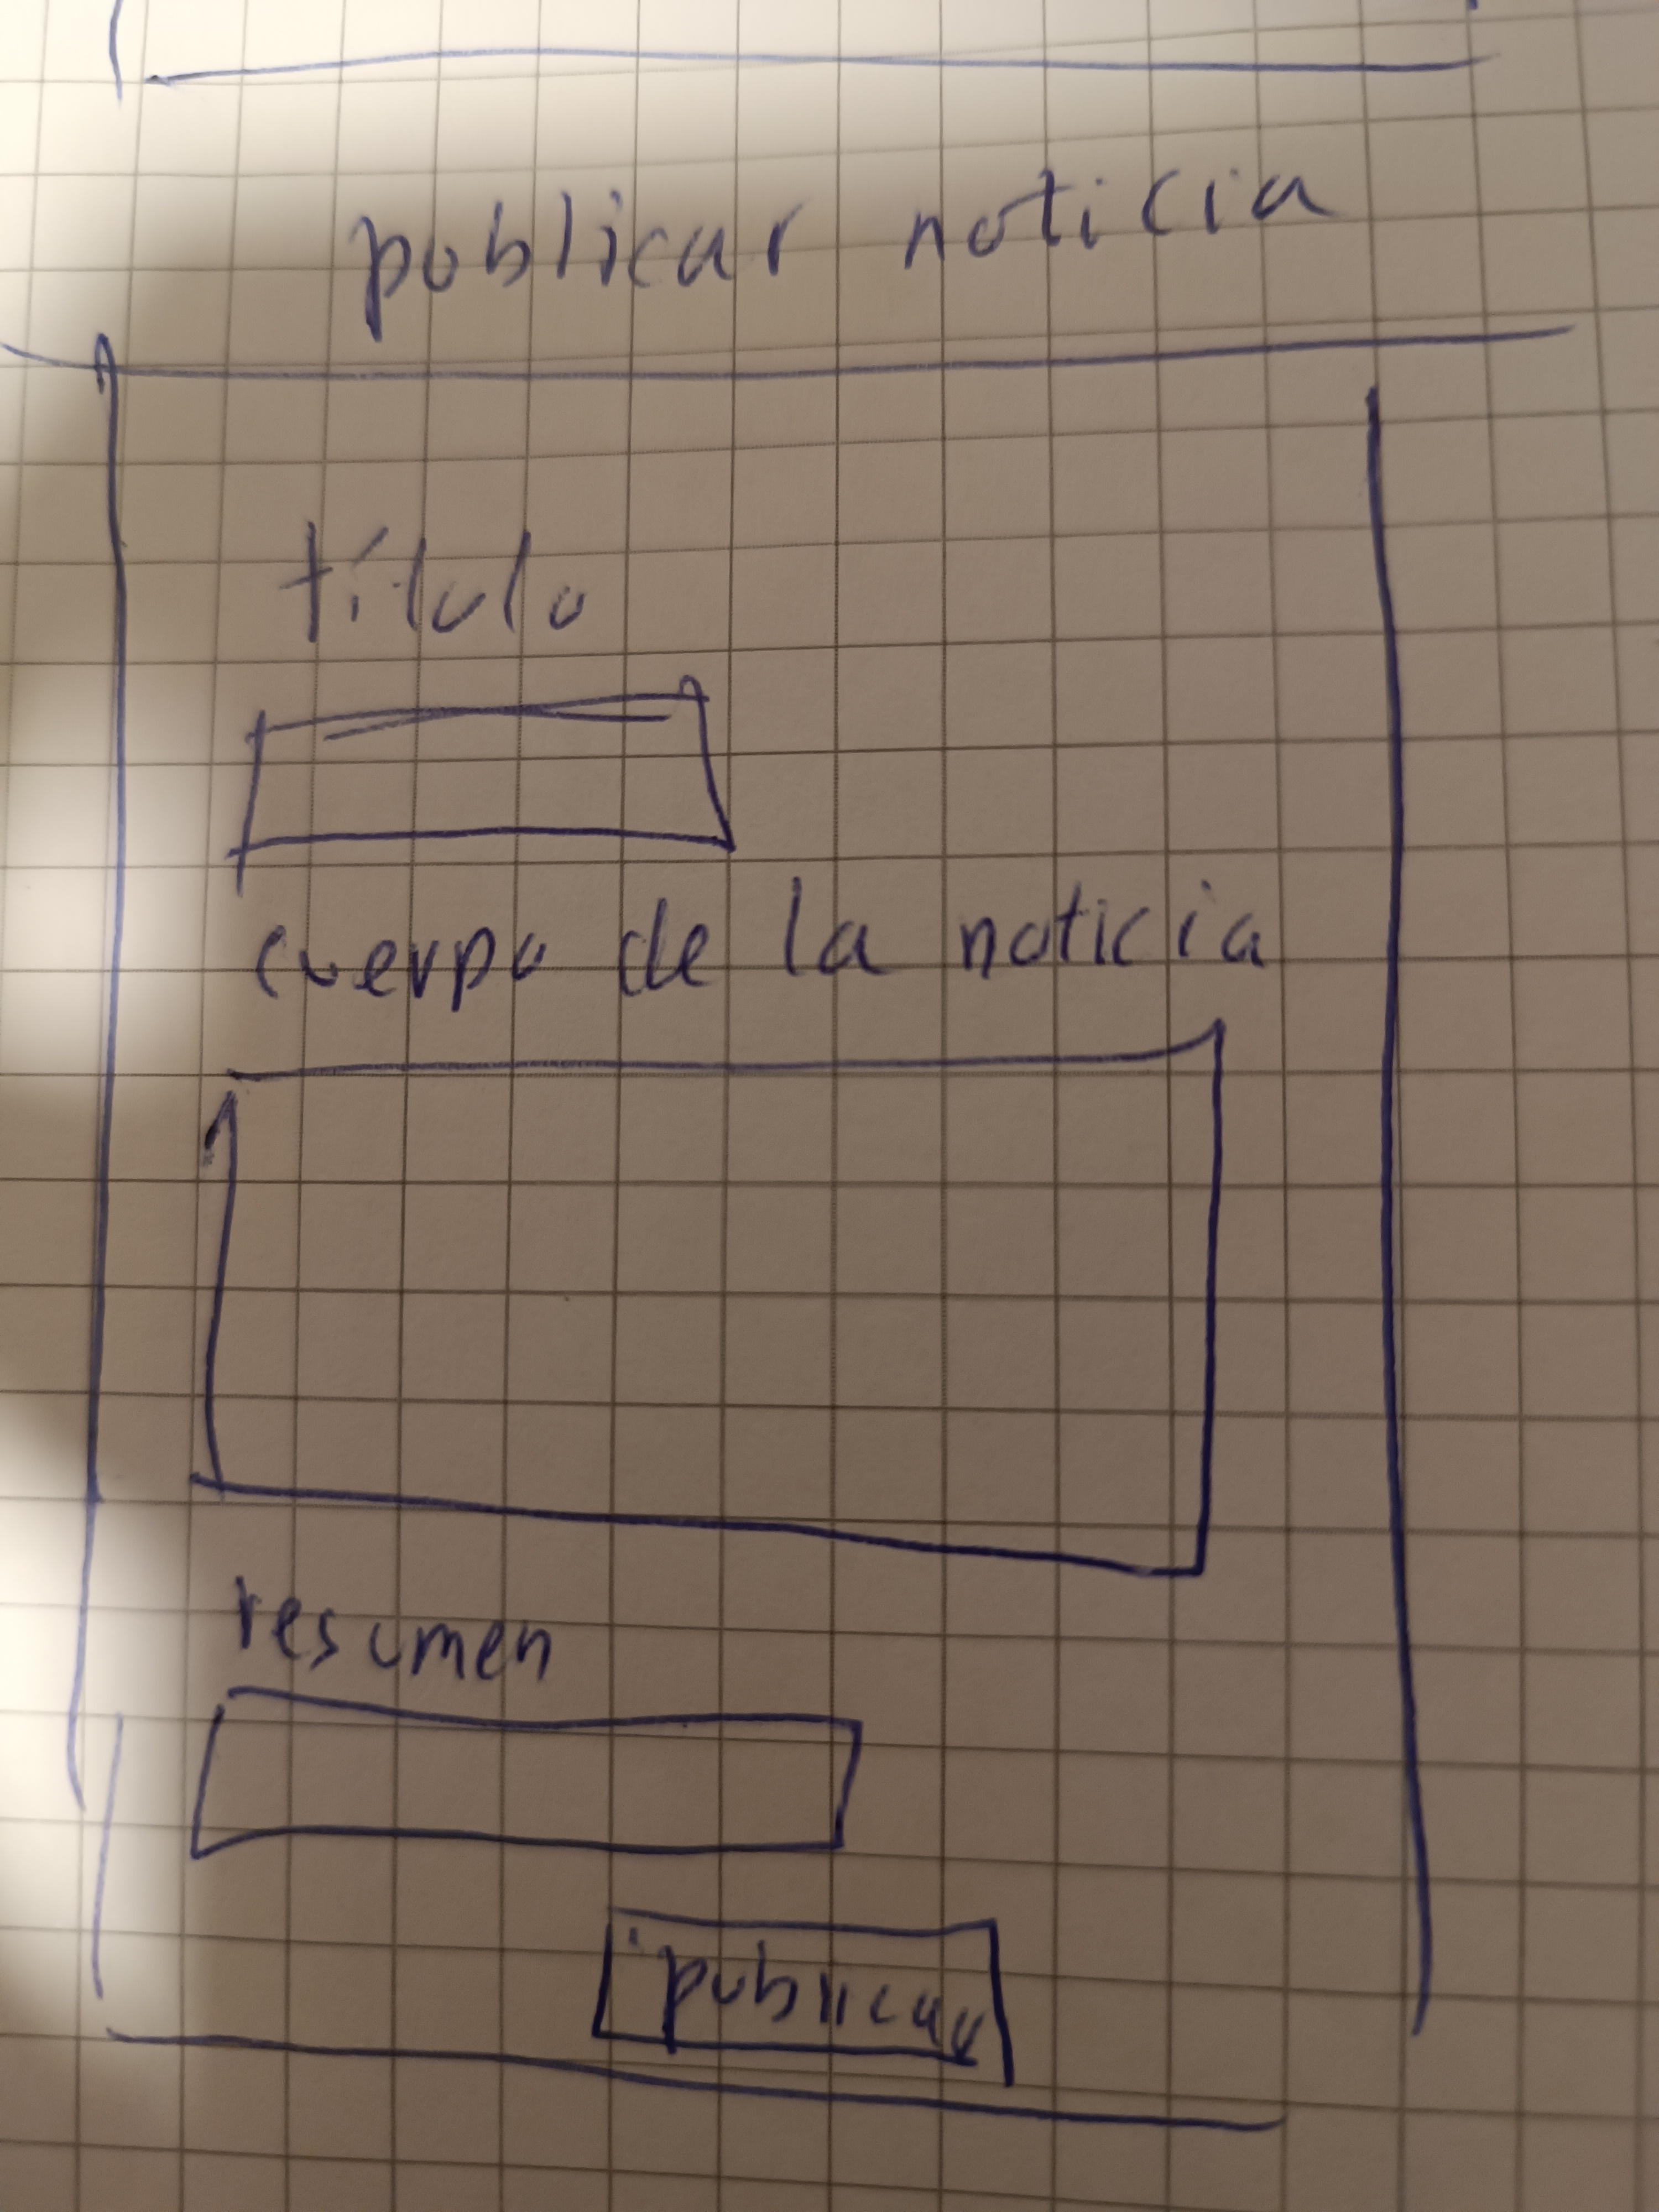 publicar noticia
título
cuerpo de la noticia
resumen
publicar